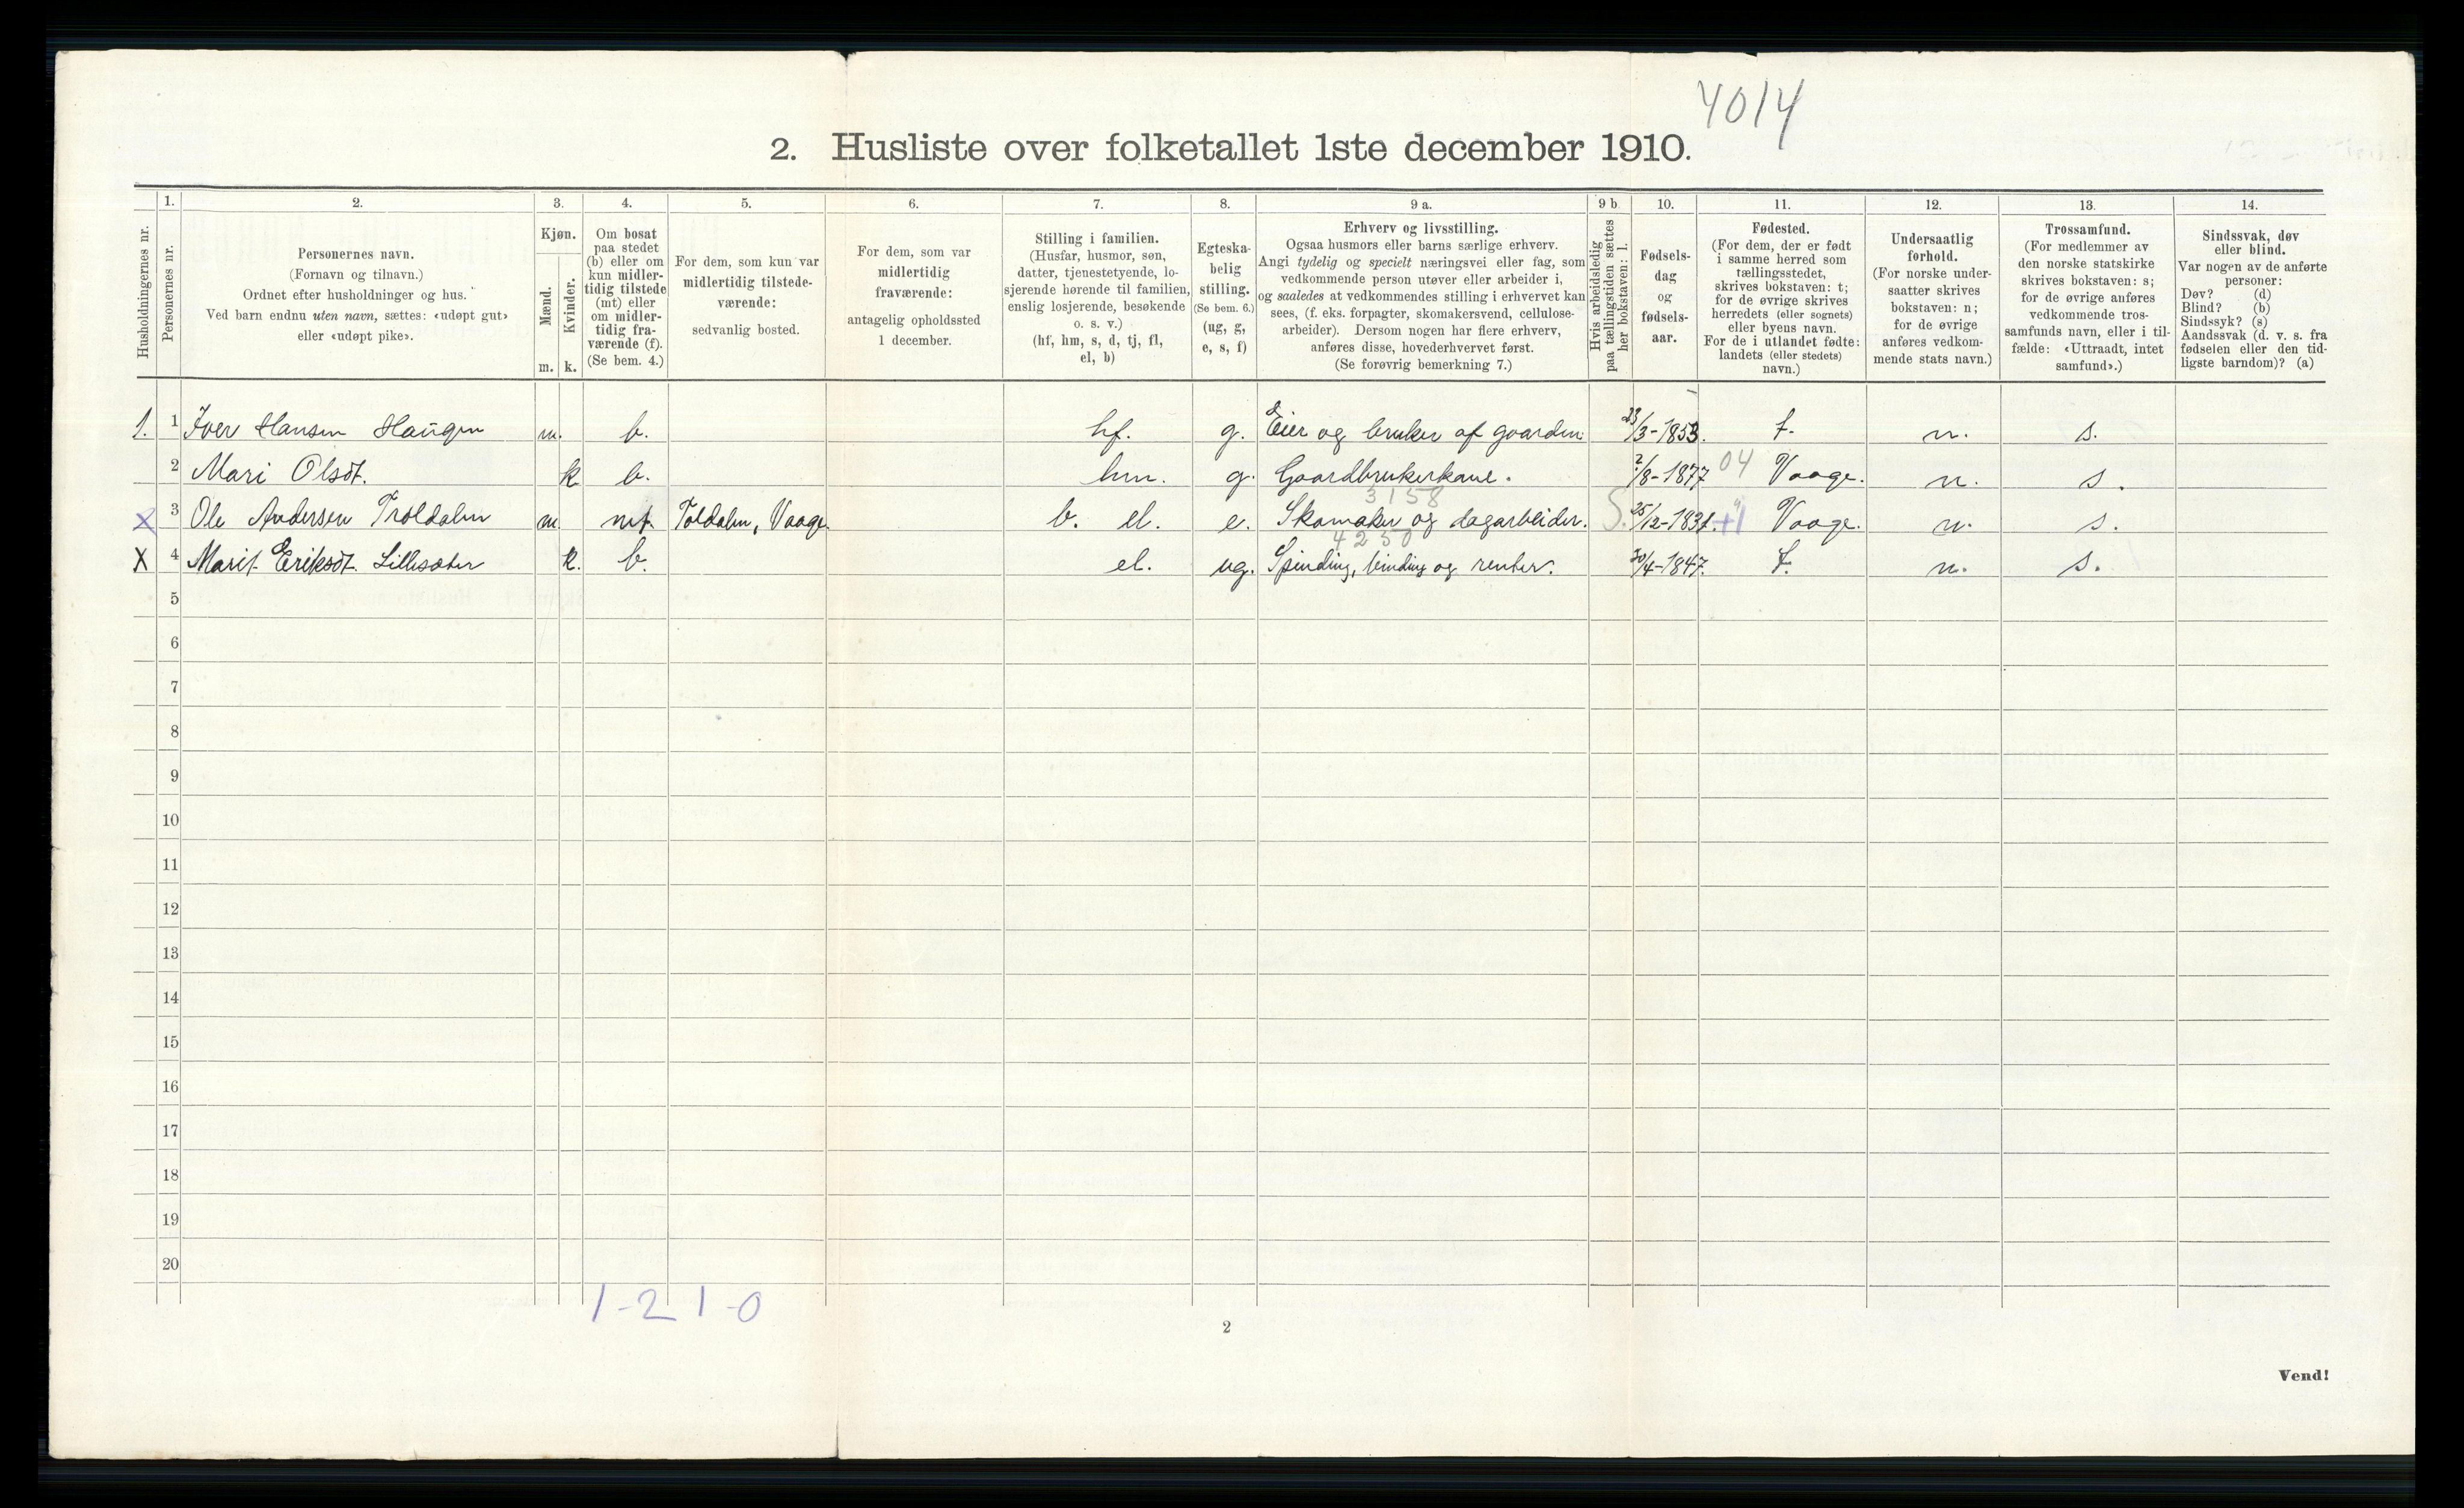 4014
2. Husliste over folketallet 1ste december 1910.
Husholdningernes nr.
1.
Personernes nr.
2.
Personernes navn.
(Fornavn og tilnavn.)
Ordnet efter husholdninger og hus.
Ved barn endnu uten navn, sættes: «udøpt gut»
eller «udøpt pike».
3.
Kjøn.
Mænd.
Kvinder.
m. k.
4.
Om bosat
paa stedet
(b) eller om
kun midler-
tidig tilstede
(mt) eller
om midler-
tidig fra-
værende (f).
(Se bem. 4.)
5.
For dem, som kun var
midlertidig tilstede-
værende:
sedvanlig bosted.
6.
For dem, som var
midlertidig
fraværende:
antagelig opholdssted
1 december.
7.
Stilling i familien.
(Husfar, husmor, søn,
datter, tjenestetyende, lo-
sjerende hørende til familien,
enslig losjerende, besøkende
o. s. v.)
(hf, hm, s, d, tj, fl,
el, b)
8.
Egteska-
belig
stilling.
(Se bem. 6.)
(ug, g,
e, s, f)
9 a.
Erhverv og livsstilling.
Ogsaa husmors eller barns særlige erhverv.
Angi tydelig og specielt næringsvei eller fag, som
vedkommende person utøver eller arbeider i,
og saaledes at vedkommendes stilling i erhvervet kan
sees, (f. eks. forpagter, skomakersvend, cellulose-
arbeider). Dersom nogen har flere erhverv,
anføres disse, hovederhvervet først.
(Se forøvrig bemerkning 7.)
9 b.
Hvis arbeidsledig
paa tællingstiden sættes
her bokstaven: l.
10.
Fødsels-
dag
og
fødsels-
aar.
11.
Fødested.
(For dem, der er født
i samme herred som
tællingsstedet,
skrives bokstaven: t;
for de øvrige skrives
herredets (eller sognets)
eller byens navn.
For de i utlandet fødte:
landets (eller stedets)
navn.)
12.
Undersaatlig
forhold.
(For norske under-
saatter skrives
bokstaven: n;
for de øvrige
anføres vedkom-
mende stats navn.)
13.
Trossamfund.
(For medlemmer av
den norske statskirke
skrives bokstaven: s;
for de øvrige anføres
vedkommende tros-
samfunds navn, eller i til-
fælde: «Uttraadt, intet
samfund».)
14.
Sindssvak, døv
eller blind.
Var nogen av de anførte
personer:
Døv? (d)
Blind? (b)
Sindssyk? (s)
Aandssvak (d. v. s. fra
fødselen eller den tid-
ligste barndom)? (a)
1. 1 Iver Hansen Haugen m. b. hf. g. Eier og bruker af gaarden. 23/3-1853. t. n. s.
2 Mari Olsdt. k b. hm. g. Gaardbrukerkone. 2/8-1877 04 Vaage. n. s.
3158
X 3 Ole Andersen Troldalen m mt. Toldalen, Vaage. b. el. e. Skomaker og dagarbeider. S. 25/12-1831. Vaage. n. s.
4250
X 4 Marit Eriksdt. Lillesæter k. b. el. ug. Spinding, binding og renter. 30/4-1847. t. n. s.
5
6
7
8
9
10
11
12
13
14
15
16
17
18
19
20
1-2 1-0
2
Vend!